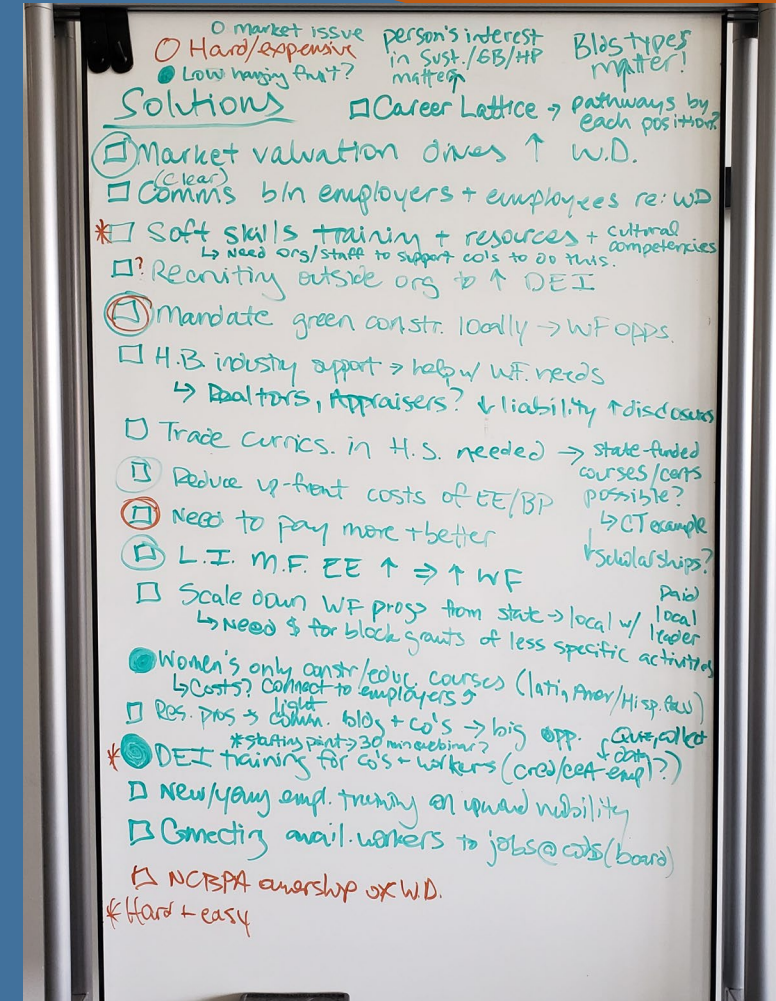 O market issue
O Hard/expensive
Low hanging fruit?
person's interest
in Sust./GB/HP
matters
Bldg types
matter!
Solutions
□ Career Lattice → pathways by
each position?
□ Market valuation drives ↑ W.D.
(Clear)
□ Comms b/n employers + employees re: WD
*□ Soft skills training + resources + cultural
competencies
↳ Need org/staff to support co's to do this.
□? Recruiting outside org to ↑ DEI
□ Mandate green constr. locally → WF opps.
□ H.B. industry support → help w/ WF needs
↳ Realtors, Appraisers? ↓ liability ↑ disclosures
□ Trade currics. in H.S. needed → state-funded
courses/certs
possible?
↳ CT example
↓ scholarships?
□ Reduce up-front costs of EE/BP
□ Need to pay more + better
□ L.I. M.F. EE ↑ ⇒ ↑ WF
□ Scale down WF progs from state → local w/
paid
local
leader
↳ Need $ for block grants of less specific activities
Women's only constr/educ. courses (latin Amer/Hisp.
↳ Costs? Connect to employers
□ Res. pros → light
comm. bldg + co's → big opp.
Quiz, collect
↓ data
*starting point → 30 min webinar?
* DEI training for co's + workers (cred/cert empl?)
□ New/young empl. training on upward mobility
□ Connecting avail. workers to jobs@co's (board)
□ NCBPA ownership of W.D.
*Hard + easy